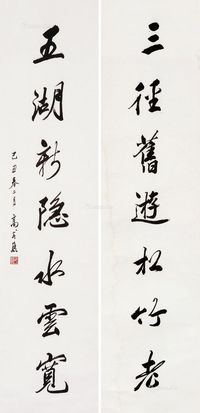 三徑舊遊松竹老
五湖新隱水雲寬
己丑春二月